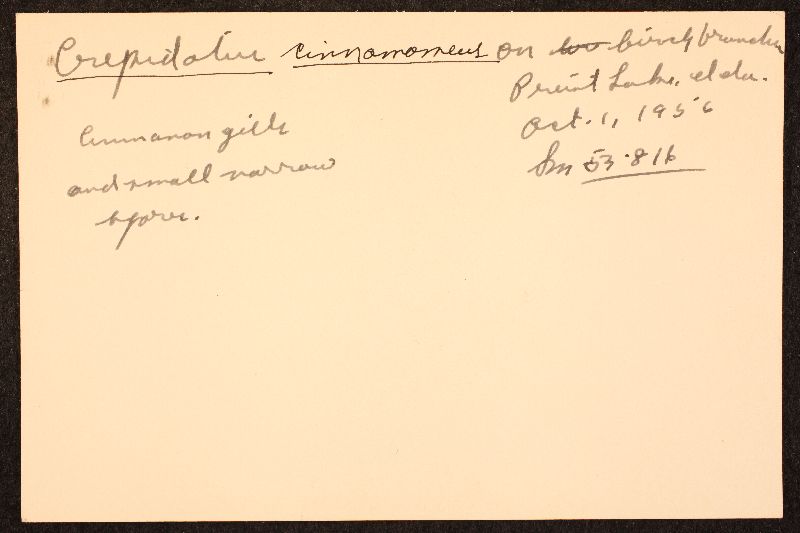 Crepidotus cinnamomeus on birch branches
Priest Lake, Ida.
Oct. 1, 1956
Sm 53816
Cinnamon gills
and small narrow
spores.